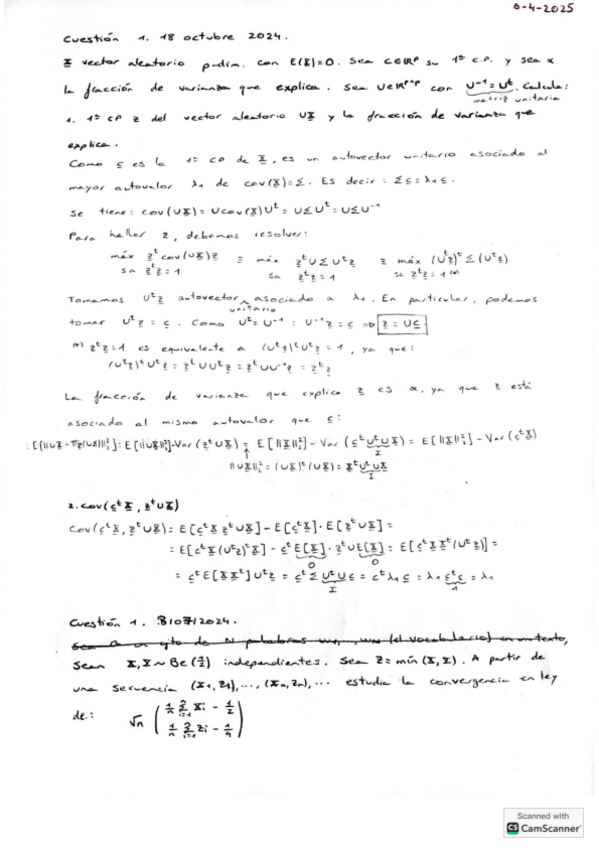 6-4-2025
Cuestión 1. 18 octubre 2024.
X vector aleatorio p-dim. con E(X)=0. Sea c∈ℝᵖ su 1ª c.p. y sea α
la fracción de varianza que explica. Sea U∈ℝᵖˣᵖ con U⁻¹=Uᵗ. Calcula:
matriz unitaria
1. 1ª CP z del vector aleatorio UX y la fracción de varianza que
explica.
Como c es la 1ª CP de X, es un autovector unitario asociado al
mayor autovalor λ₁ de cov(X)=Σ. Es decir: Σc=λ₁c.
Se tiene: cov(UX)=Ucov(X)Uᵗ=UΣUᵗ=UΣU⁻¹
Para hallar z, debemos resolver:
máx zᵗcov(UX)z ≡ máx zᵗUΣUᵗz ≡ máx (Uᵗz)ᵗΣ(Uᵗz)
sa zᵗz=1 sa zᵗz=1 sa zᵗz=1 (*)
Tomamos Uᵗz autovector unitario asociado a λ₁. En particular, podemos
tomar Uᵗz=c. Como Uᵗ=U⁻¹: U⁻¹z=c ⇒ z=Uc
(*) zᵗz=1 es equivalente a (Uᵗz)ᵗUᵗz=1, ya que:
(Uᵗz)ᵗUᵗz=zᵗUUᵗz=zᵗUU⁻¹z=zᵗz
La fracción de varianza que explica z es α, ya que z está
asociado al mismo autovalor que c:
E[‖UX-πz(UX)‖²₂]=E[‖UX‖²₂]-Var(zᵗUX)=E[‖X‖²₂]-Var(cᵗUᵗUX)=E[‖X‖²₂]-Var(cᵗX)
I
‖UX‖²₂=(UX)ᵗ(UX)=XᵗUᵗUX
I
2. cov(cᵗX, zᵗUX)
cov(cᵗX, zᵗUX)=E[cᵗX zᵗUX]-E[cᵗX]·E[zᵗUX]=
=E[cᵗX(Uᵗz)ᵗX]-cᵗE[X]·zᵗUE[X]=E[cᵗXXᵗ(Uᵗz)]=
0 0
=cᵗE[XXᵗ]Uᵗz=cᵗΣUᵗUc=cᵗλ₁c=λ₁cᵗc=λ₁
I 1
Cuestión 1. 8/07/2024.
Sean X,Y∼Be(½) independientes. Sea Z=mín(X,Y). A partir de
una secuencia (X₁,Z₁),...,(Xn,Zn),... estudia la convergencia en ley
de: √n ( 1/n Σᵢ₌₁ Xi - 1/2
1/n Σᵢ₌₁ Zi - 1/4 )
Scanned with
CS CamScanner